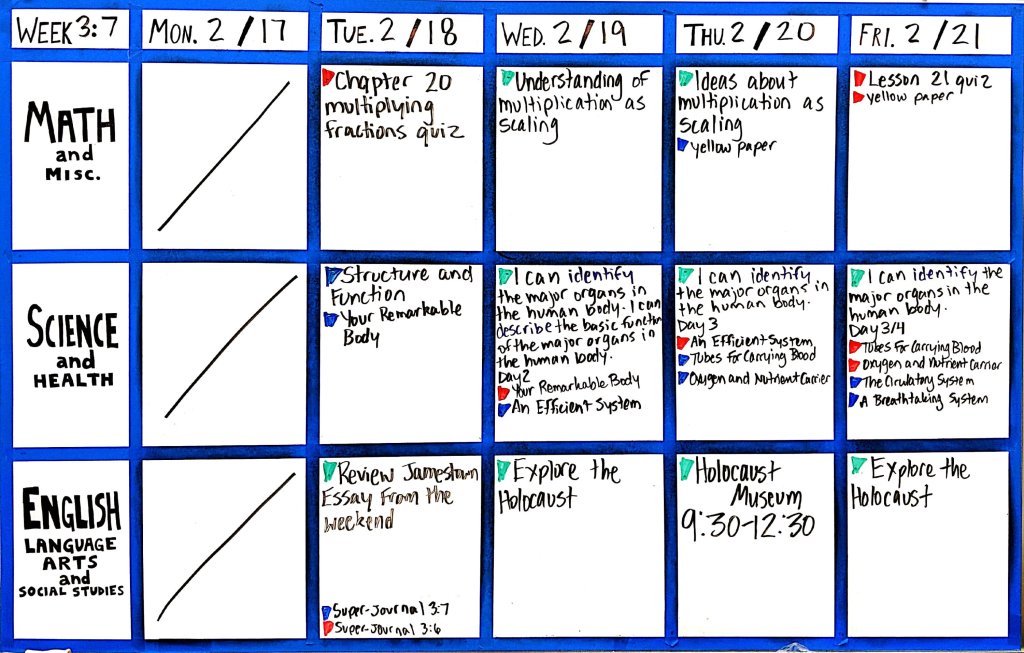 WEEK 3:7
MON. 2/17
TUE. 2/18
WED. 2/19
THU. 2/20
FRI. 2/21
MATH
and
MISC.
Chapter 20
multiplying
fractions quiz
Understanding of
multiplication as
scaling
Ideas about
multiplication as
scaling
yellow paper
Lesson 21 quiz
yellow paper
SCIENCE
and
HEALTH
Structure and
Function
Your Remarkable
Body
I can identify
the major organs in
the human body. I can
describe the basic function
of the major organs in
the human body.
Day 2
Your Remarkable Body
An Efficient System
I can identify
the major organs in
the human body.
Day 3
An Efficient System
Tubes For Carrying Bood
Oxygen and Nutrient Carrier
I can identify the
major organs in the
human body.
Day 3/4
Tubes For Carrying Blood
Oxygen and Nutrient Carrier
The Circulatory System
A Breathtaking System
ENGLISH
LANGUAGE
ARTS
and
SOCIAL STUDIES
Review Jamestown
Essay From the
weekend
Super-Journal 3:7
Super-Journal 3:6
Explore the
Holocaust
Holocaust
Museum
9:30-12:30
Explore the
Holocaust